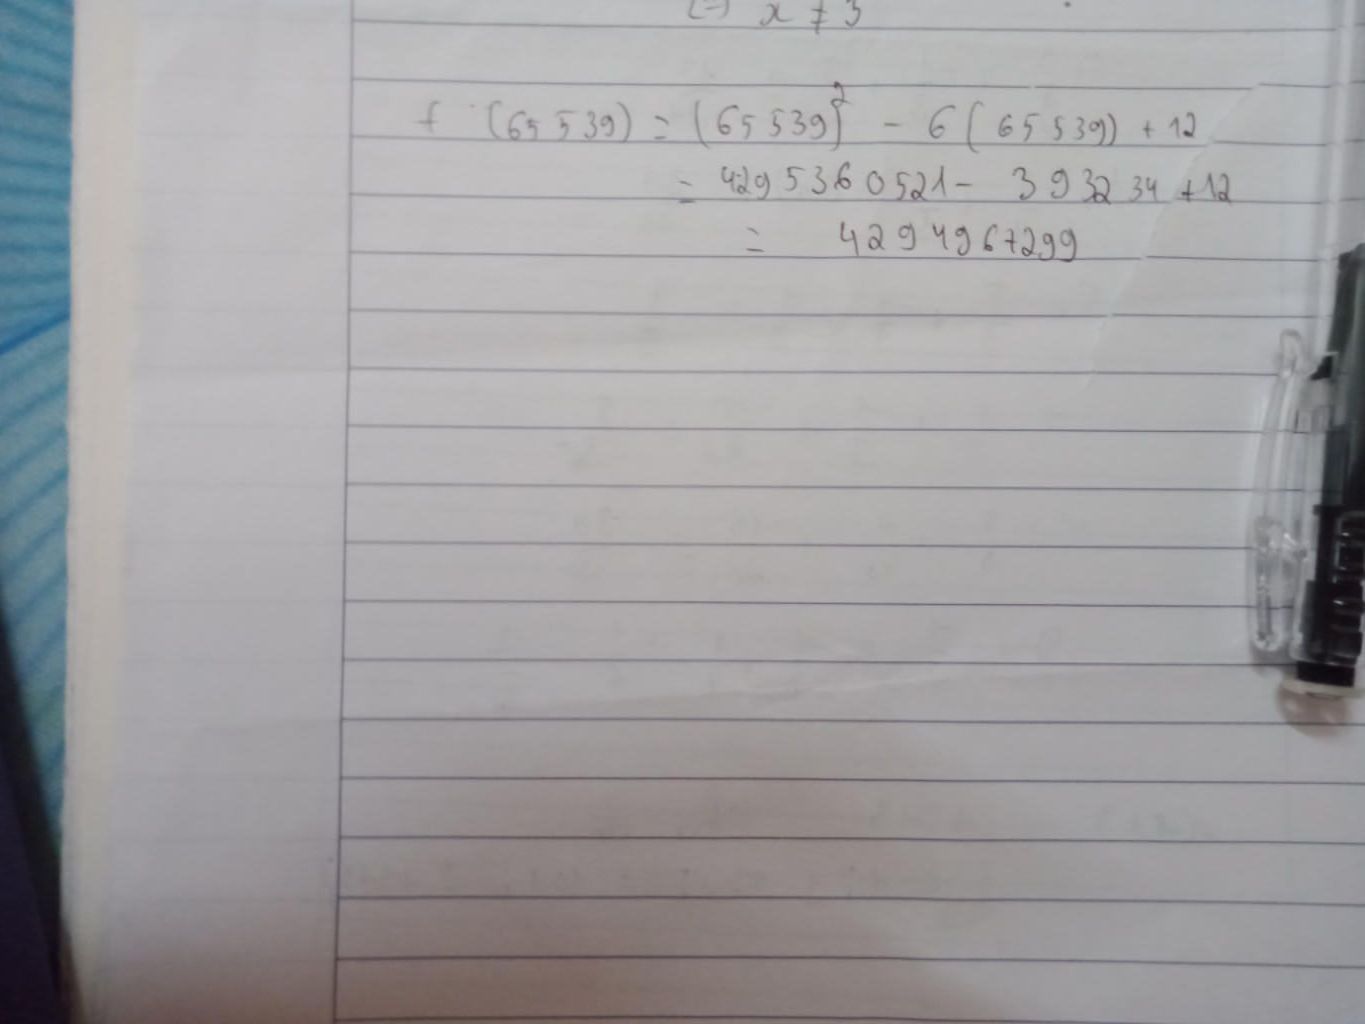 (=) x ≠ 3
f (65 539) = (65 539)² - 6 (65 539) + 12
= 429 5360521 - 3932 34 + 12
= 4294967299